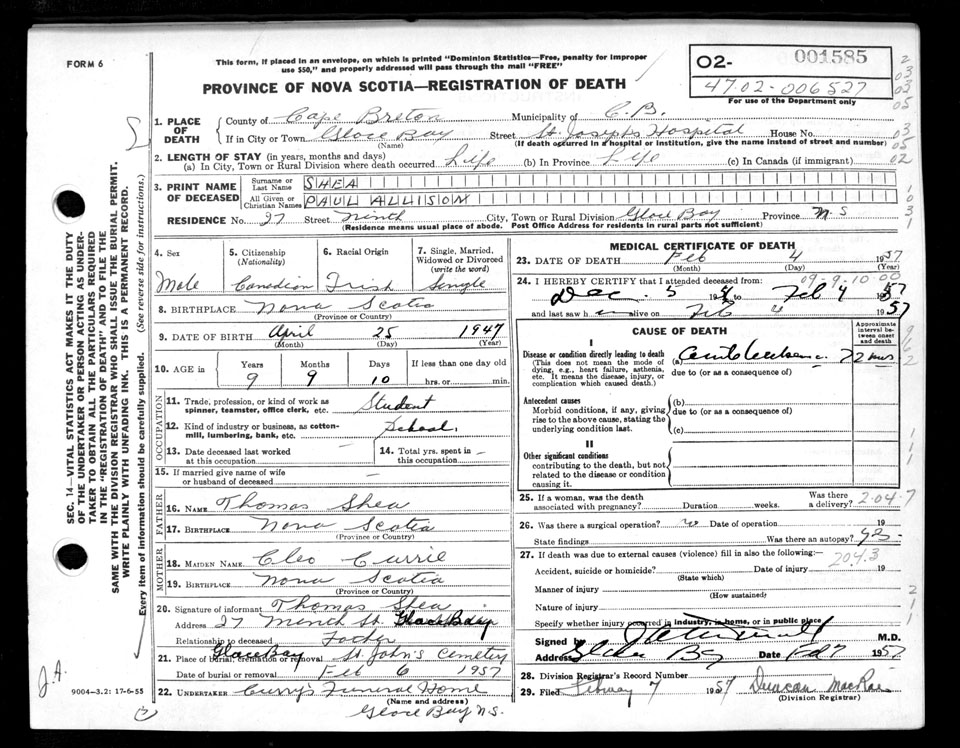 FORM 6
This form, if placed in an envelope, on which is printed "Dominion Statistics—Free, penalty for improper
use $50," and properly addressed will pass through the mail "FREE"
PROVINCE OF NOVA SCOTIA—REGISTRATION OF DEATH
02- 001585
47.02-006527
For use of the Department only
1. PLACE OF DEATH
County of Cape Breton Municipality of C.B.
If in City or Town Glace Bay Street St. Josephs Hospital House No.
(Name) (If death occurred in a hospital or institution, give the name instead of street and number)
2. LENGTH OF STAY (in years, months and days)
(a) In City, Town or Rural Division where death occurred Life (b) In Province Life (c) In Canada (if immigrant)
3. PRINT NAME OF DECEASED
Surname or Last Name SHEA
All Given or Christian Names PAUL ALLISON
RESIDENCE No. 27 Street Ninth City, Town or Rural Division Glace Bay Province N S
(Residence means usual place of abode. Post Office Address for residents in rural parts not sufficient)
4. Sex Male
5. Citizenship (Nationality) Canadian
6. Racial Origin Irish
7. Single, Married, Widowed or Divorced (write the word) Single
8. BIRTHPLACE Nova Scotia
(Province or Country)
9. DATE OF BIRTH April 25 1947
(Month) (Day) (Year)
10. AGE in Years 9 Months 9 Days 10 If less than one day old
hrs. or min.
OCCUPATION
11. Trade, profession, or kind of work as spinner, teamster, office clerk, etc. Student
12. Kind of industry or business, as cotton-mill, lumbering, bank, etc. School
13. Date deceased last worked at this occupation —
14. Total yrs. spent in this occupation —
15. If married give name of wife or husband of deceased —
FATHER
16. NAME Thomas Shea
17. BIRTHPLACE Nova Scotia
(Province or Country)
MOTHER
18. MAIDEN NAME Cleo Currie
19. BIRTHPLACE Nova Scotia
(Province or Country)
20. Signature of informant Thomas Shea
Address 27 St. Glace Bay
Relationship to deceased Father
21. Place of burial, cremation or removal Glace Bay St. John's Cemetery
Date of burial or removal Feb 6 1957
22. UNDERTAKER Curry's Funeral Home
(Name and address)
Glace Bay N.S.
9004-3.2: 17-6-55
J.A.
MEDICAL CERTIFICATE OF DEATH
23. DATE OF DEATH Feb 4 1957
(Month) (Day) (Year)
09-9-10-00
24. I HEREBY CERTIFY that I attended deceased from:
Dec. 5 Feb 4 1957
and last saw h im alive on Feb 4 1957
CAUSE OF DEATH
Approximate interval between onset and death
I
Disease or condition directly leading to death (a)
(This does not mean the mode of dying, e.g., heart failure, asthenia, etc. It means the disease, injury, or complication which caused death.)
due to (or as a consequence of)
Antecedent causes
Morbid conditions, if any, giving rise to the above cause, stating the underlying condition last.
(b)
due to (or as a consequence of)
(c)
II
Other significant conditions
contributing to the death, but not related to the disease or condition causing it.
25. If a woman, was the death associated with pregnancy? Duration weeks. Was there a delivery?
2-04-7
26. Was there a surgical operation? no Date of operation 19
State findings Was there an autopsy?
27. If death was due to external causes (violence) fill in also the following:—
204.3
Accident, suicide or homicide? Date of injury 19
(State which)
Manner of injury
(How sustained)
Nature of injury
Specify whether injury occurred in industry, in home, or in public place
Signed by M.D.
Address Glace Bay Date Feb 7 1957
28. Division Registrar's Record Number
29. Filed February 7 1957 Duncan MacRae
(Division Registrar)
SEC. 14—VITAL STATISTICS ACT MAKES IT THE DUTY
OF THE UNDERTAKER OR PERSON ACTING AS UNDER-
TAKER TO OBTAIN ALL THE PARTICULARS REQUIRED
IN THE "REGISTRATION OF DEATH" AND TO FILE THE
SAME WITH THE DIVISION REGISTRAR WHO SHALL ISSUE THE BURIAL PERMIT.
WRITE PLAINLY WITH UNFADING INK. THIS IS A PERMANENT RECORD.
Every item of information should be carefully supplied. (See reverse side for instructions.)